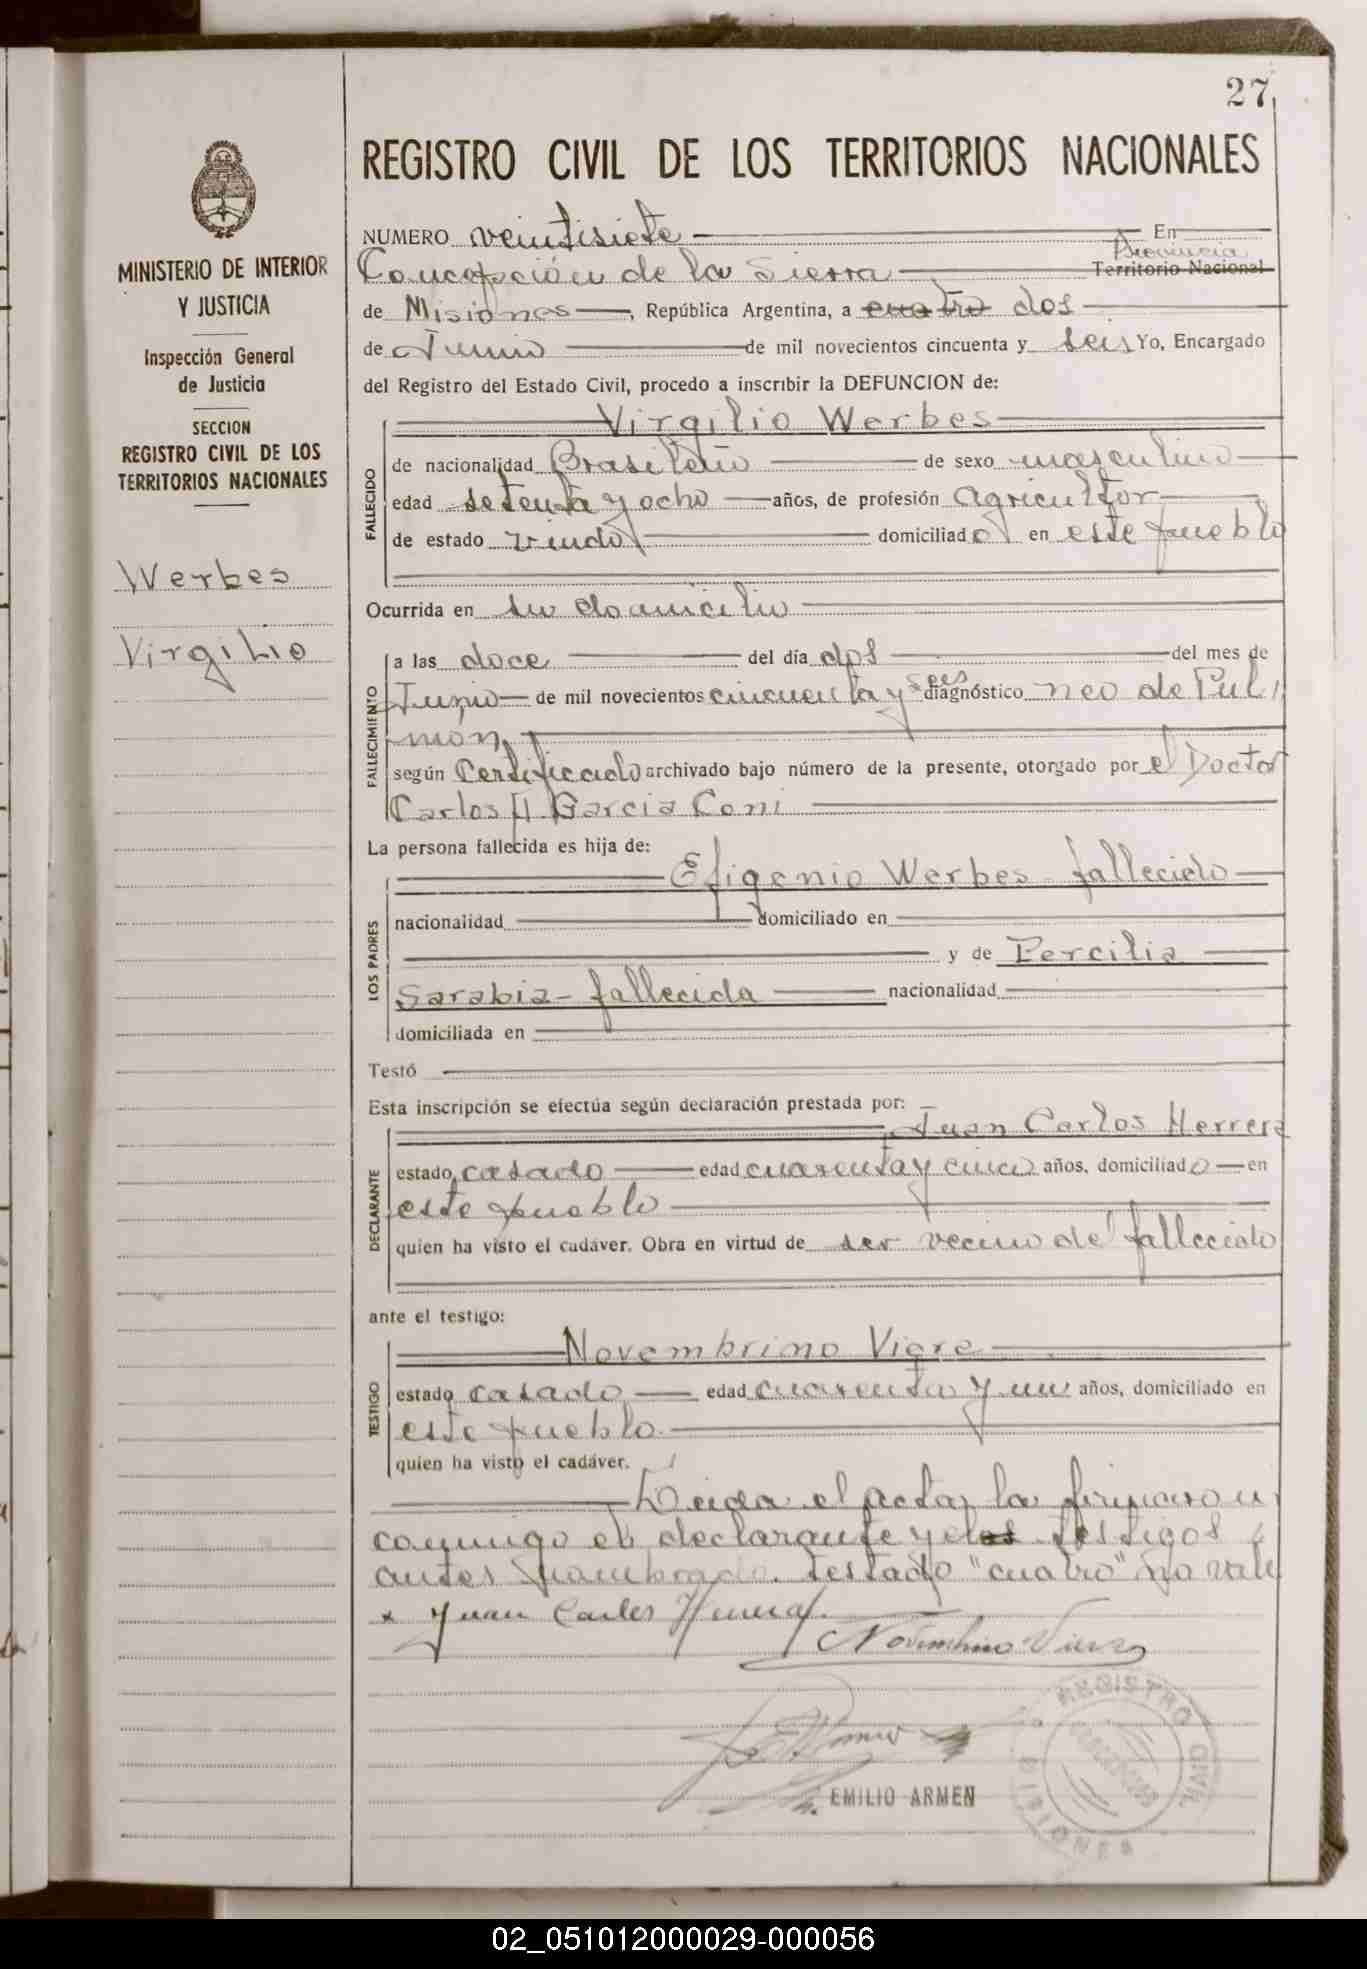 27
MINISTERIO DE INTERIOR
Y JUSTICIA
Inspección General
de Justicia
SECCION
REGISTRO CIVIL DE LOS
TERRITORIOS NACIONALES
Werbes
Virgilio
REGISTRO CIVIL DE LOS TERRITORIOS NACIONALES
NUMERO veintisiete En
Concepción de la Sierra Provincia Territorio Nacional
de Misiones, República Argentina, a cuatro dos
de Junio de mil novecientos cincuenta y seis Yo, Encargado
del Registro del Estado Civil, procedo a inscribir la DEFUNCION de:
FALLECIDO
Virgilio Werbes
de nacionalidad Brasileño de sexo masculino
edad setenta y ocho años, de profesión agricultor
de estado viudo domiciliado en este pueblo
Ocurrida en su domicilio
FALLECIMIENTO
a las doce del día dos del mes de
Junio de mil novecientos cincuenta y seis diagnóstico neo de Pul
mon,
según Certificado archivado bajo número de la presente, otorgado por el Doctor
Carlos A. Garcia Coni
La persona fallecida es hija de:
LOS PADRES
Efigenio Werbes fallecido
nacionalidad domiciliado en
y de Percilia
Sarabia - fallecida nacionalidad
domiciliada en
Testó
Esta inscripción se efectúa según declaración prestada por:
DECLARANTE
Juan Carlos Herrera
estado casado edad cuarenta y cinco años, domiciliado en
este pueblo
quien ha visto el cadáver. Obra en virtud de ser vecino del fallecido
ante el testigo:
TESTIGO
Novembrino Viera
estado casado edad cuarenta y un años, domiciliado en
este pueblo.
quien ha visto el cadáver.
Leida el acta, la firmaron
conmigo el declarante y el los testigos
antes nombrado. testado "cuatro" no vale
x Juan Carlos Herrera.
Novembrino Viera
EMILIO ARMEN
REGISTRO CIVIL
MISIONES
02_051012000029-000056